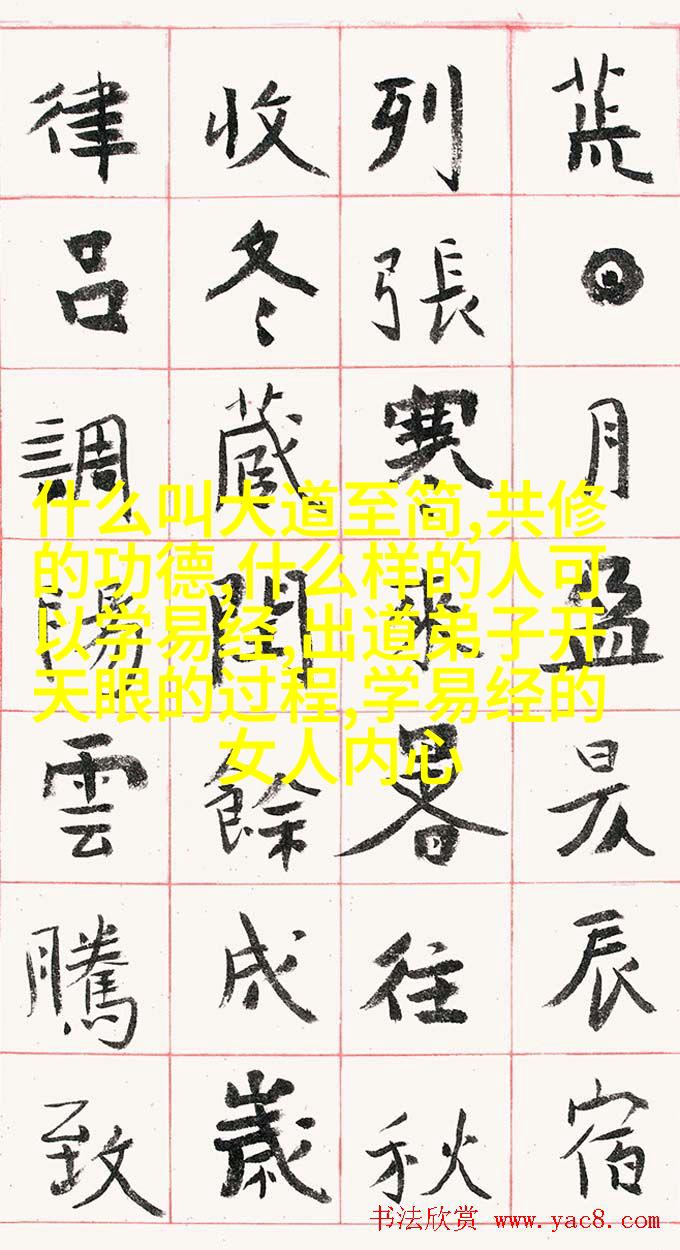 荒日月盈昃辰宿
列張寒來暑往秋
收冬藏閏餘成歲
律呂調陽雲騰致
什么叫大道至简,共修
的功德,什么样的人可
以学易经,出道弟子开
天眼的过程,学易经的
女人内心
书法欣赏 www.yac8.com